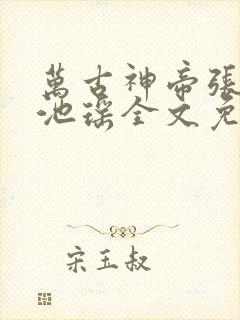 萬古神帝張
池瑤全文免
宋玉叔